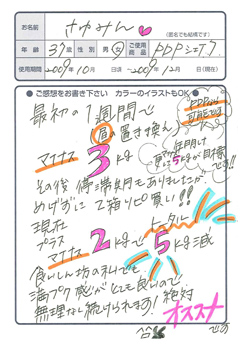 お名前 さゆみん
(匿名でも結構です)
年齢 37歳 性別 男・女 ご使用商品 PDPシェイク
使用期間 2009年10月 日頃 ~ 2009年12月 日(現在)
● ご感想をお書き下さい カラーのイラストもOK ●
最初の1週間で
昼置き換え
マイナス3kg
年明け
5kgが目標
です!!
その後停滞期もありましたが
めげずに2箱リピ買い!!
現在
プラス
マイナス2kgで トータル5kg減
食いしん坊の私でも
満プク感がとても良いので
無理なく続けられます!絶対
オススメ
です